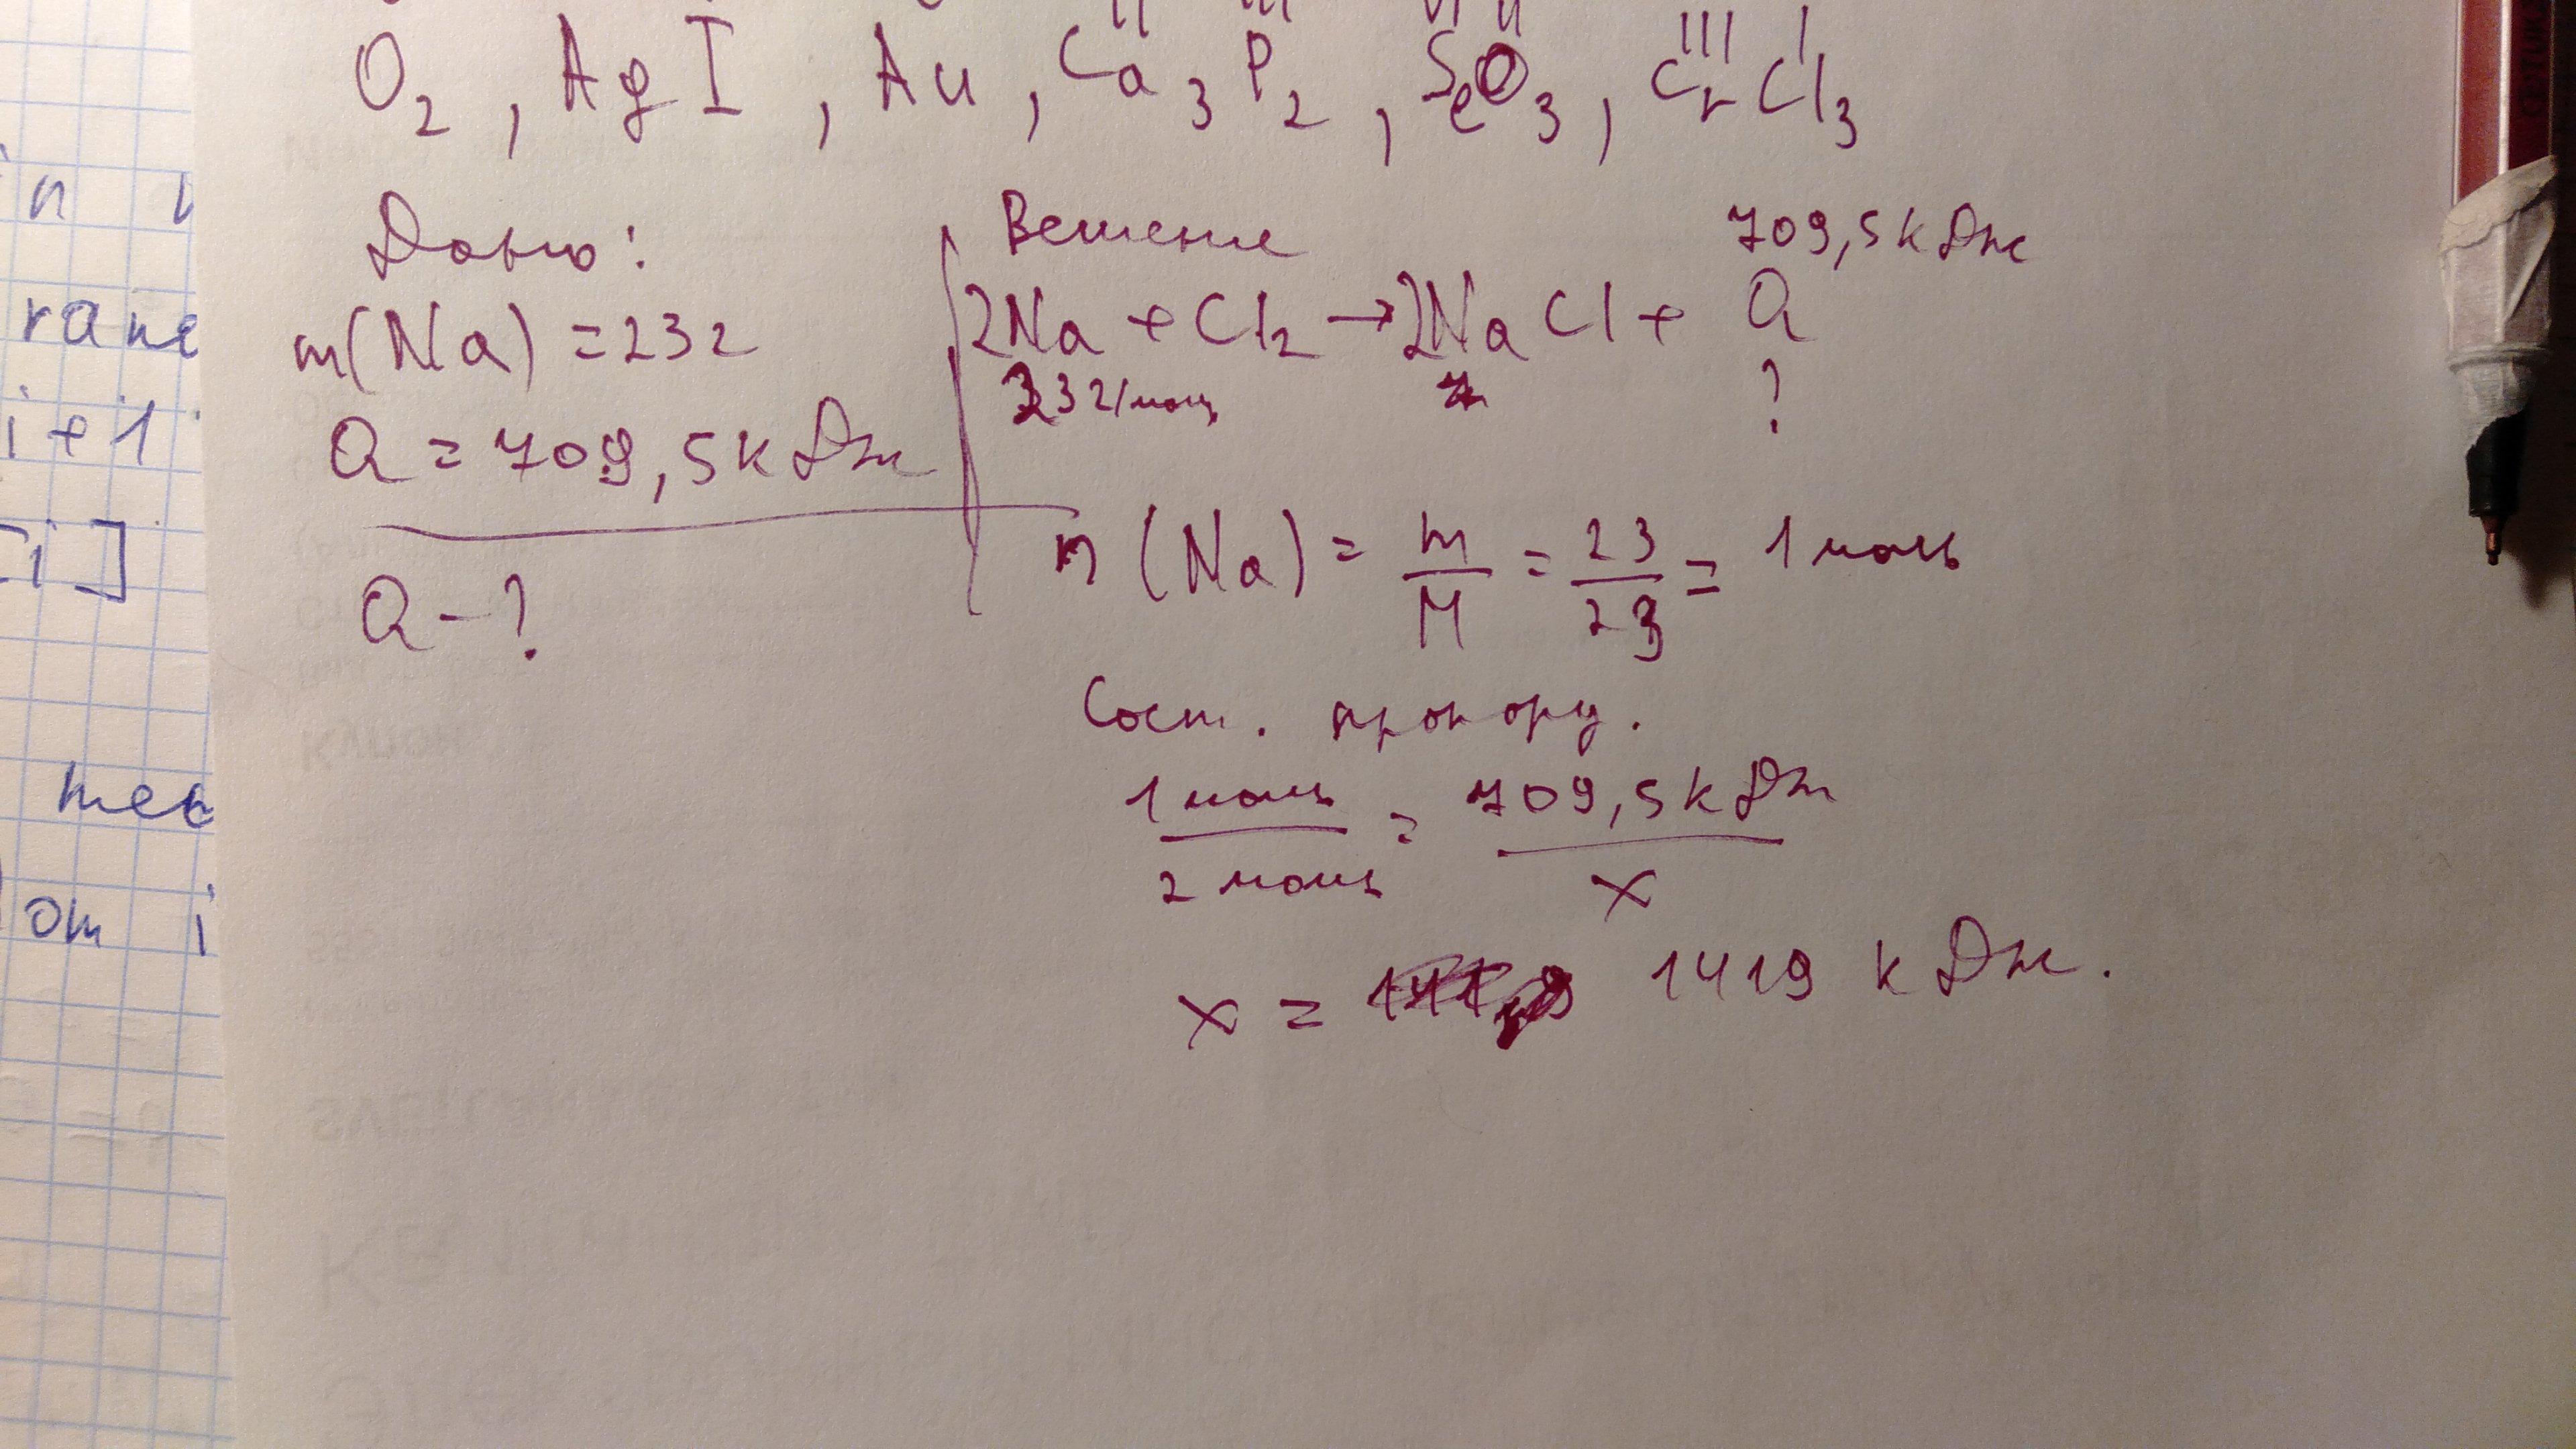 II III VI II III I
O₂, AgI, Au, Ca₃P₂, SeO₃, CrCl₃
Дано:
m(Na) = 23г
Q = 709,5кДж
Q - ?
Решение
709,5кДж
2Na + Cl₂ → 2NaCl + Q
23г/моль
?
n(Na) = m/M = 23/23 = 1 моль
Сост. пропорц.
1 моль/2 моль = 709,5кДж/x
x = 1419 кДж.
in
rane
i+1
i]
тес
om i